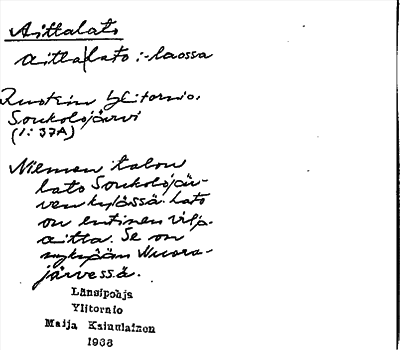 Aittalato
Aitta|lato :-laossa
Ruotsin Ylitornio.
Soukolojärvi
(1: 37A)
Niemen talon
lato Soukolojär-
ven kylässä. Lato
on entinen vilja-
aitta. Se on
nykyään Vuoma-
järvessä.
Länsipohja
Ylitornio
Maija Kainulainen
1968